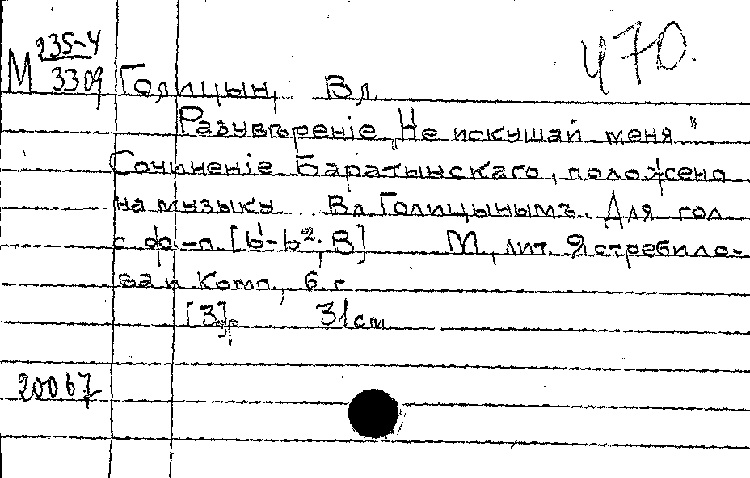 470.
М 235-4
3309
Голицын, Вл.
Разувѣреніе „Не искушай меня"
Сочиненіе Баратынскаго, положено
на музыку Вл. Голицынымъ. Для гол.
с ф.-п. [b¹-b²; B] М., лит. Ястребило-
ва и Комп., б. г.
[3] 31 см
20067